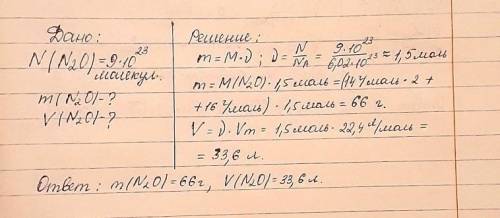 Дано:
N(N₂O)=9·10²³
молекул.
m(N₂O)-?
V(N₂O)-?
Решение:
m=M·ϑ; ϑ=N/Nₐ=9·10²³/6,02·10²³≈1,5моль
m=M(N₂O)·1,5моль=(14г/моль·2+
+16г/моль)·1,5моль=66 г.
V=ϑ·Vm=1,5моль·22,4л/моль=
=33,6 л.
Ответ: m(N₂O)=66г, V(N₂O)=33,6л.